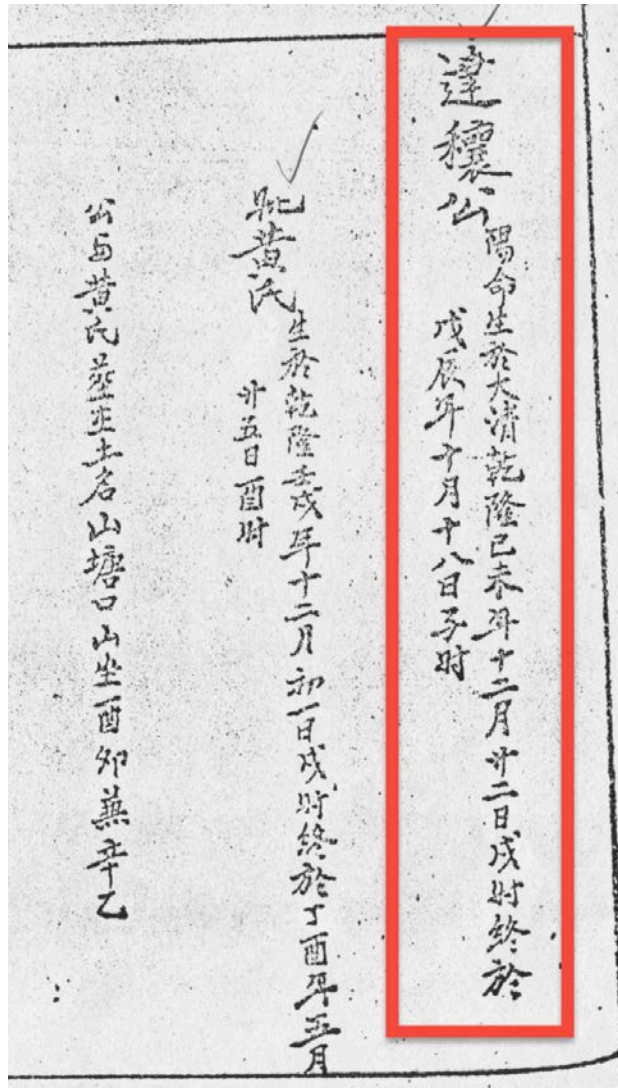 達穰公
陽命生於大清乾隆己未年十二月廿二日戌时終於
戊辰年十月十八日子时
妣黄氏
生於乾隆壬戌年十二月初一日戌时終於丁酉年五月
廿五日酉时
公与黄氏葬在土名山塘口山坐酉卯兼辛乙